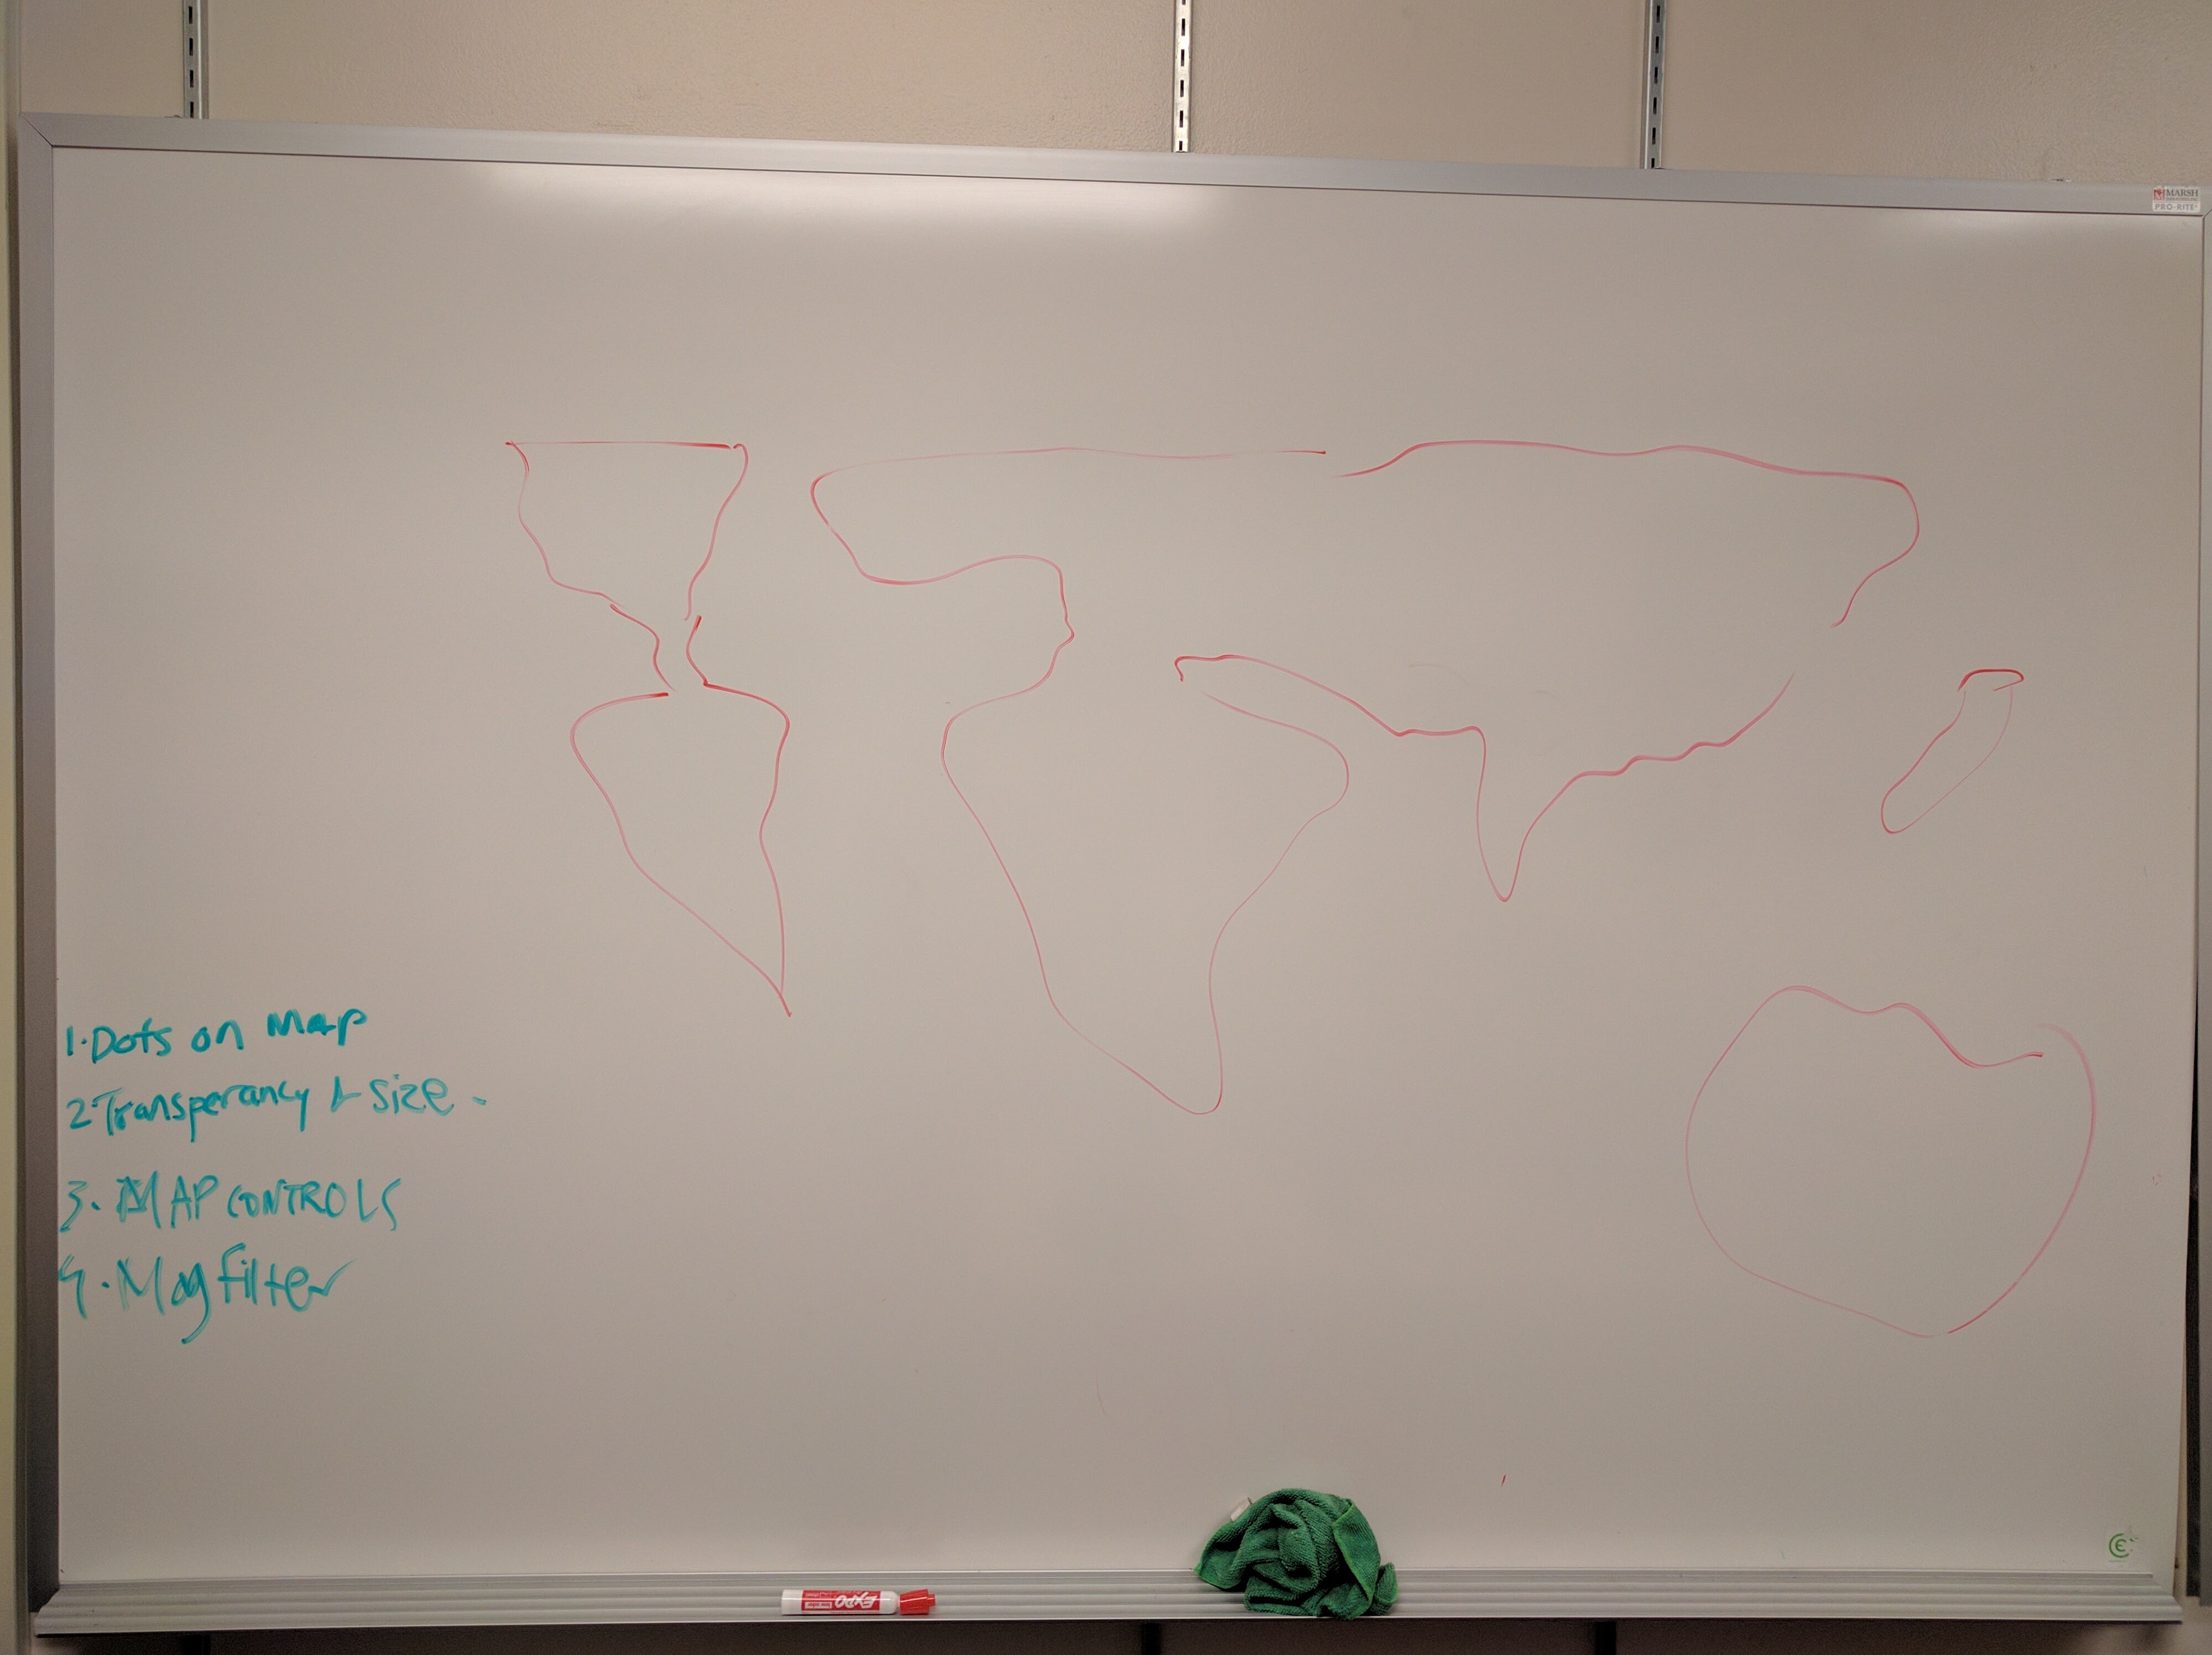 MARSH
PRO-RITE
1. Dots on Map
2. Transperancy & Size.
3. MAP CONTROLS
4. Mag filter
EXPO